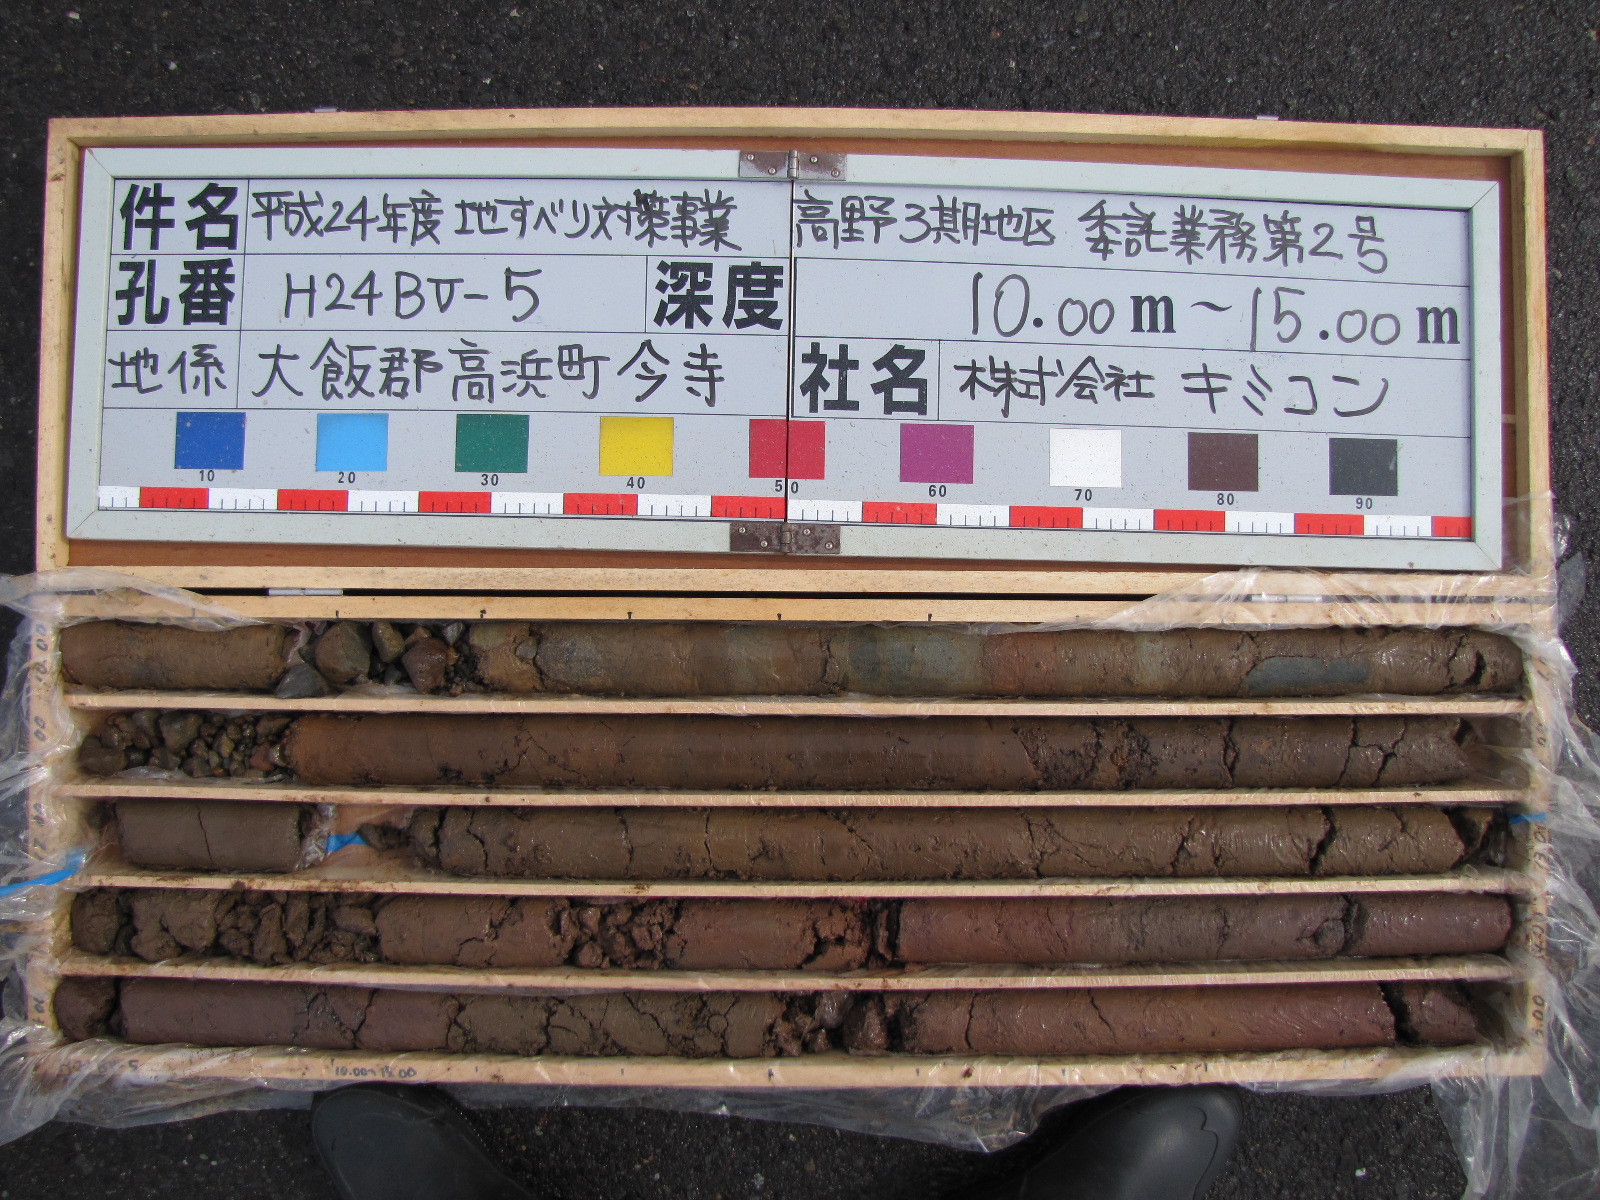 件名 平成24年度 地すべり対策事業 高野3期地区 委託業務第2号
孔番 H24BV-5 深度 10.00m~15.00m
地係 大飯郡高浜町今寺 社名 株式会社 キミコン
10 20 30 40 50 60 70 80 90
10.00~15.00